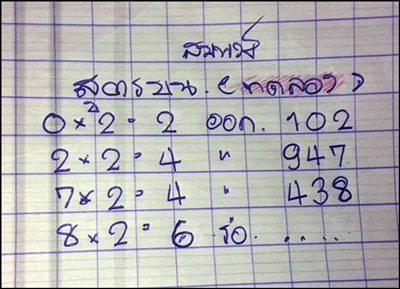 สมหวัง
สูตรบน. (ทดลอง)
0 × 2 = 2 ออก. 102
2 × 2 = 4 " 947
7 × 2 = 4 " 438
8 × 2 = 6 รอ. .....